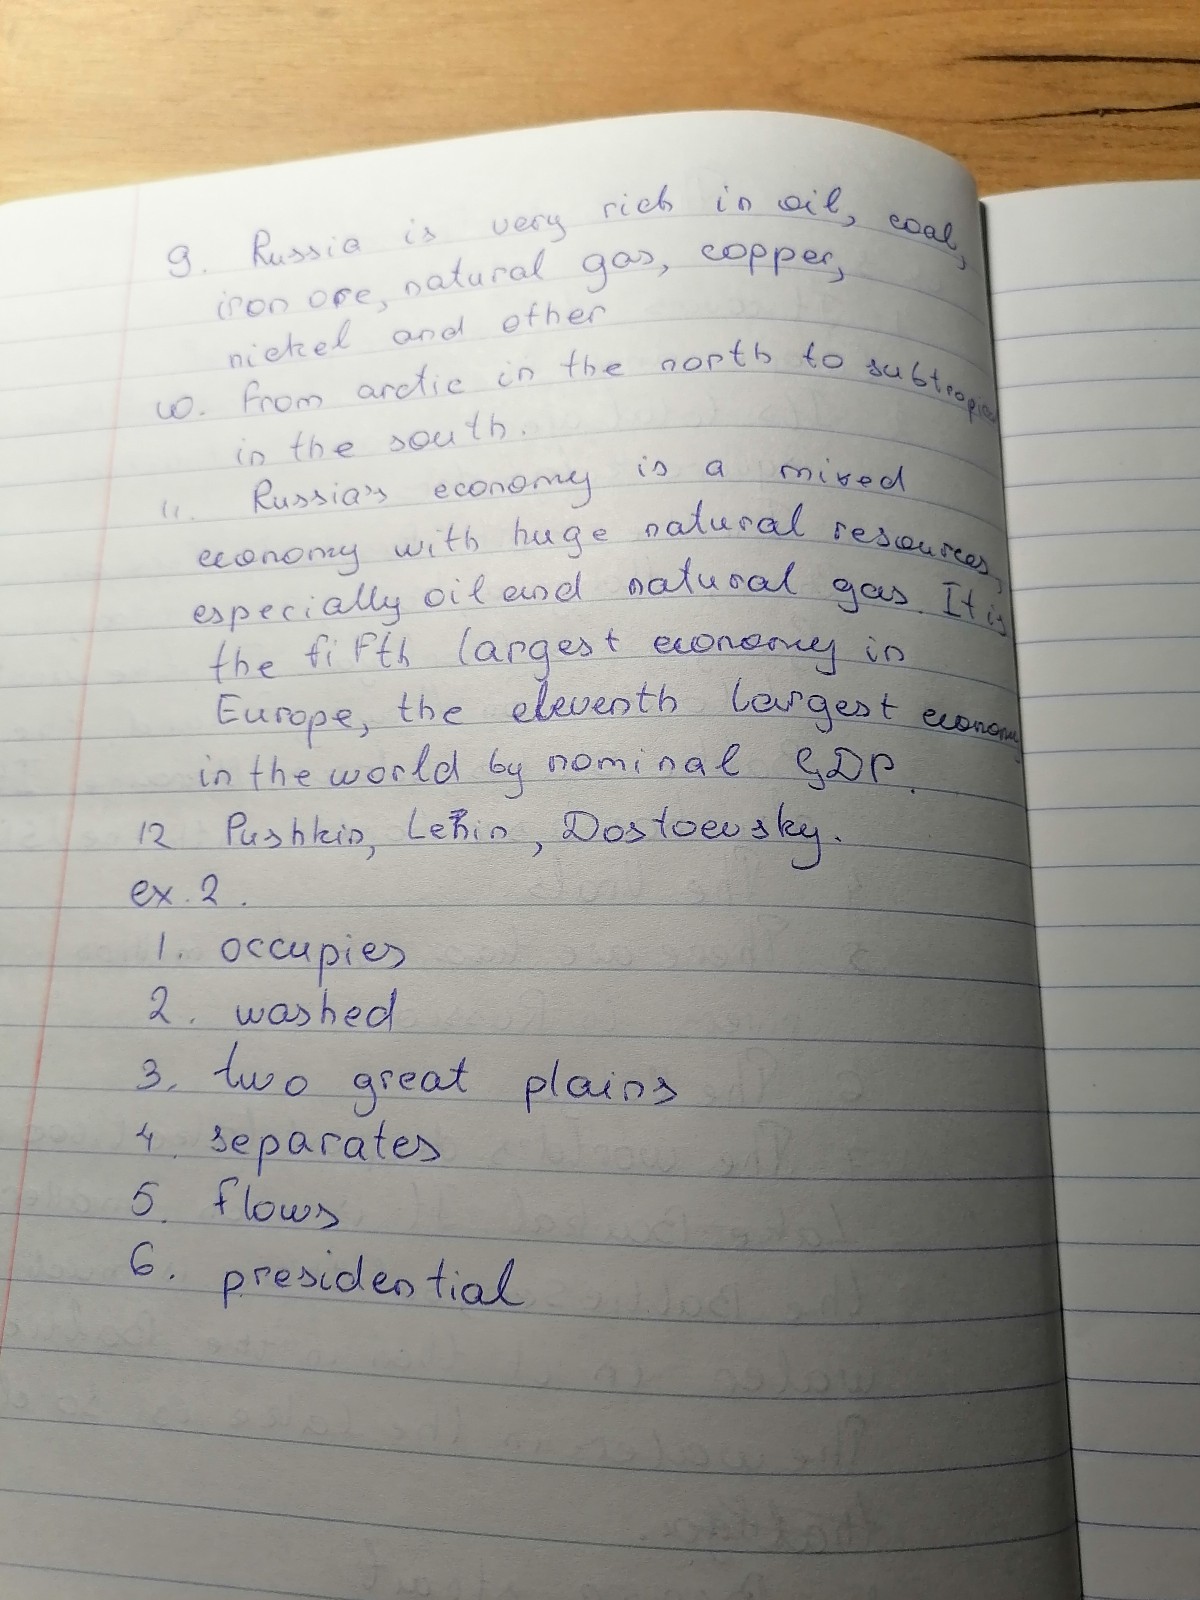 9. Russia is very rich in oil, coal,
iron ore, natural gas, copper,
nickel and other
10. From arctic in the north to subtropical
in the south.
11. Russia's economy is a mixed
economy with huge natural resources,
especially oil and natural gas. It is
the fifth largest economy in
Europe, the eleventh largest economy
in the world by nominal GDP.
12 Pushkin, Lenin, Dostoevsky.
ex. 2.
1. occupies
2. washed
3. two great plains
4. separates
5. flows
6. presidential